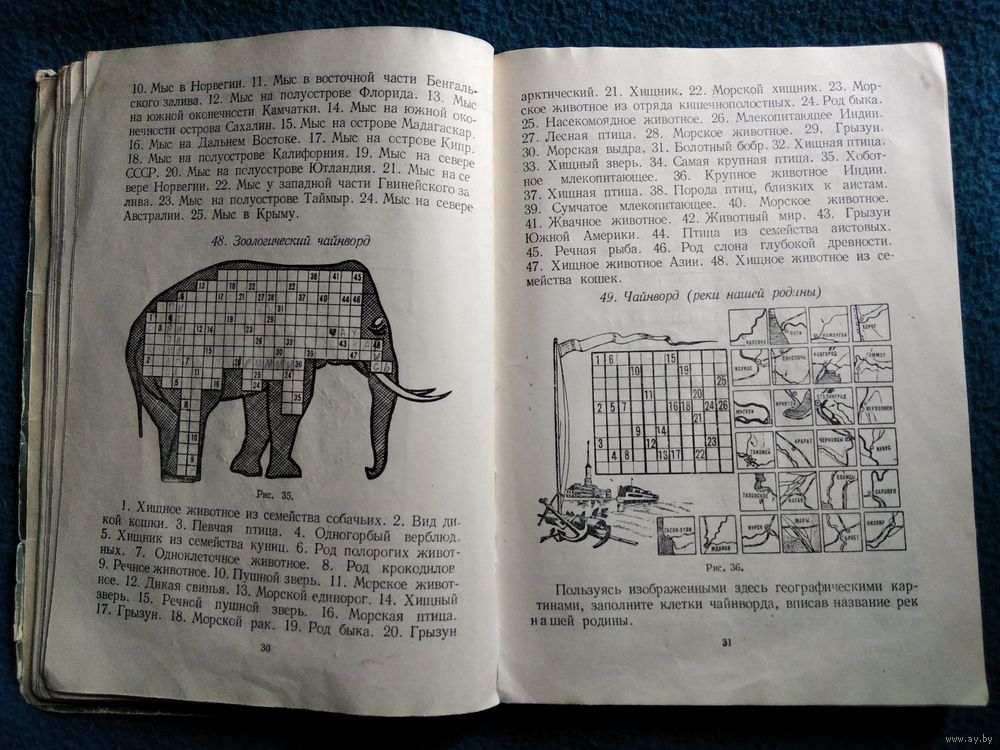 10. Мыс в Норвегии. 11. Мыс в восточной части Бенгаль-
ского залива. 12. Мыс на полуострове Флорида. 13. Мыс
на южной оконечности Камчатки. 14. Мыс на южной око-
нечности острова Сахалин. 15. Мыс на острове Мадагаскар.
16. Мыс на Дальнем Востоке. 17. Мыс на острове Кипр.
18. Мыс на полуострове Калифорния. 19. Мыс на севере
СССР. 20. Мыс на полуострове Ютландия. 21. Мыс на се
вере Норвегии. 22. Мыс у западной части Гвинейского за
лива. 23. Мыс на полуострове Таймыр. 24. Мыс на севере
Австралии. 25. Мыс в Крыму.
48. Зоологический чайнворд
Рис. 35.
1. Хищное животное из семейства собачьих. 2. Вид ди-
кой кошки. 3. Певчая птица. 4. Одногорбый верблюд.
5. Хищник из семейства куниц. 6. Род полорогих живот-
ных. 7. Одноклеточное животное. 8. Род крокодилов
9. Речное животное. 10. Пушной зверь. 11. Морское живот-
ное. 12. Дикая свинья. 13. Морской единорог. 14. Хищный
зверь. 15. Речной пушной зверь. 16. Морская птица.
17. Грызун. 18. Морской рак. 19. Род быка. 20. Грызун
30
арктический. 21. Хищник. 22. Морской хищник. 23. Мор-
ское животное из отряда кишечнополостных. 24. Род быка.
25. Насекомоядное животное. 26. Млекопитающее Индии.
27. Лесная птица. 28. Морское животное. 29. Грызун.
30. Морская выдра. 31. Болотный бобр. 32. Хищная птица.
33. Хищный зверь. 34. Самая крупная птица. 35. Хобот-
ное млекопитающее. 36. Крупное животное Индии.
37. Хищная птица. 38. Порода птиц, близких к аистам.
39. Сумчатое млекопитающее. 40. Морское животное.
41. Жвачное животное. 42. Животный мир. 43. Грызун
Южной Америки. 44. Птица из семейства аистовых.
45. Речная рыба. 46. Род слона глубокой древности.
47. Хищное животное Азии. 48. Хищное животное из се-
мейства кошек.
49. Чайнворд (реки нашей родины)
КАХОВКА ПОТИ НАМАНГАН ХОРОГ
КАУНАС НОВГОРОД
ИРКУТСК СТАЛИНГРАД ВЕРХОЯНСК
ТБИЛИСИ АРАРАТ ЧЕРНОВЦЫ НУКУС
ТАЗОВСКОЕ КАГАН САРАПУЛ
ГАСАН-КУЛИ ЖДАНОВ КУРСК БРЕСТ КИЗЛЯР
Рис. 36.
Пользуясь изображенными здесь географическими кар-
тинами, заполните клетки чайнворда, вписав название рек
нашей родины.
31
www.ay.by